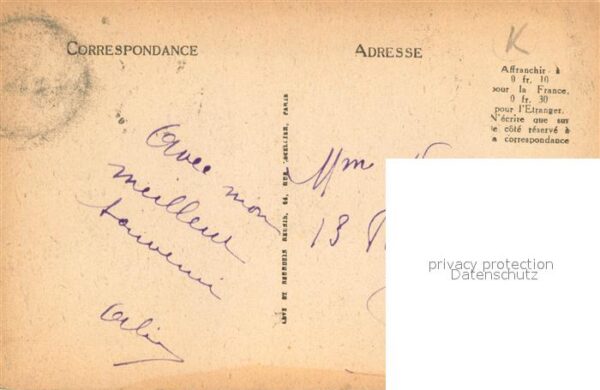 CORRESPONDANCE
ADRESSE
K
Affranchir à
0 fr. 10
pour la France,
0 fr. 30
pour l'Etranger.
N'écrire que sur
le côté réservé à
la correspondance
Avec mon
meilleur
souvenir
Mme
13
PARIS
privacy protection
Datenschutz